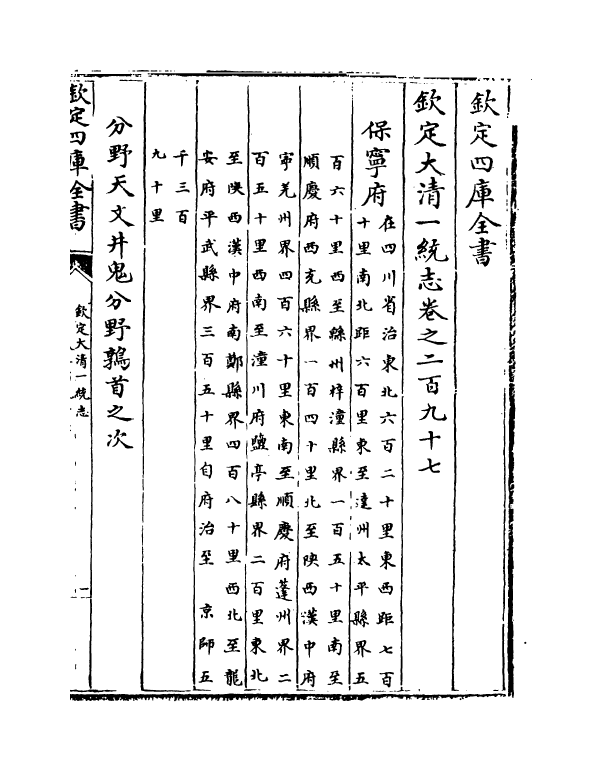 欽定四庫全書
欽定大清一統志卷之二百九十七
保寧府在四川省治東北六百二十里東西距七百
十里南北距六百里東至達州太平縣界五
百六十里西至緜州梓潼縣界一百五十里南至
順慶府西充縣界一百四十里北至陝西漢中府
寧羌州界四百六十里東南至順慶府蓬州界二
百五十里西南至潼川府鹽亭縣界二百里東北
至陝西漢中府南鄭縣界四百八十里西北至龍
安府平武縣界三百五十里自府治至 京師五
千三百
九十里
分野天文井鬼分野鶉首之次
欽定四庫全書
欽定大清一統志
一